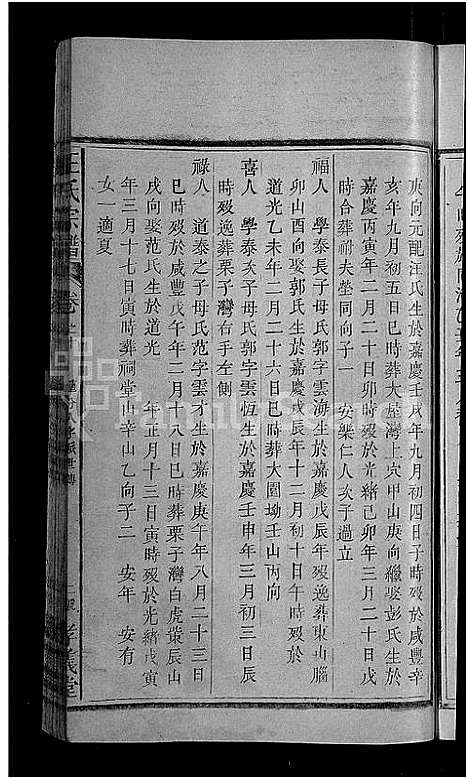 庚向元配汪氏生於嘉慶壬戌年九月初四日子時歿於咸豐辛
亥年九月初五日巳時葬大屋灣上穴甲山庚向繼娶彭氏生於
嘉慶丙寅年二月二十日卯時歿於光緒己卯年三月二十日戌
時合葬祔夫塋同向子一 安樂仁人次子過立
福人 學泰長子母氏郭字雲海生於嘉慶戊辰年歿逸葬東山腦
卯山酉向娶郭氏生於嘉慶戊辰年十二月初十日午時歿於
道光乙未年二月二十六日巳時葬大園坳壬山丙向
喜人 學泰次子母氏郭字雲恆生於嘉慶壬申年三月初三日辰
時歿逸葬栗子灣右手左側
祿人 道泰之子母氏范字雲才生於嘉慶庚午年八月二十三日
巳時歿於咸豐戊午年二月十八日巳時葬栗子灣白虎業辰山
戌向娶范氏生於 年正月十三日寅時歿於光緒戊寅
年三月十七日寅時葬祠堂山辛山乙向子二 安年 安有
女一適夏
王氏宗譜
卷之
孝義堂